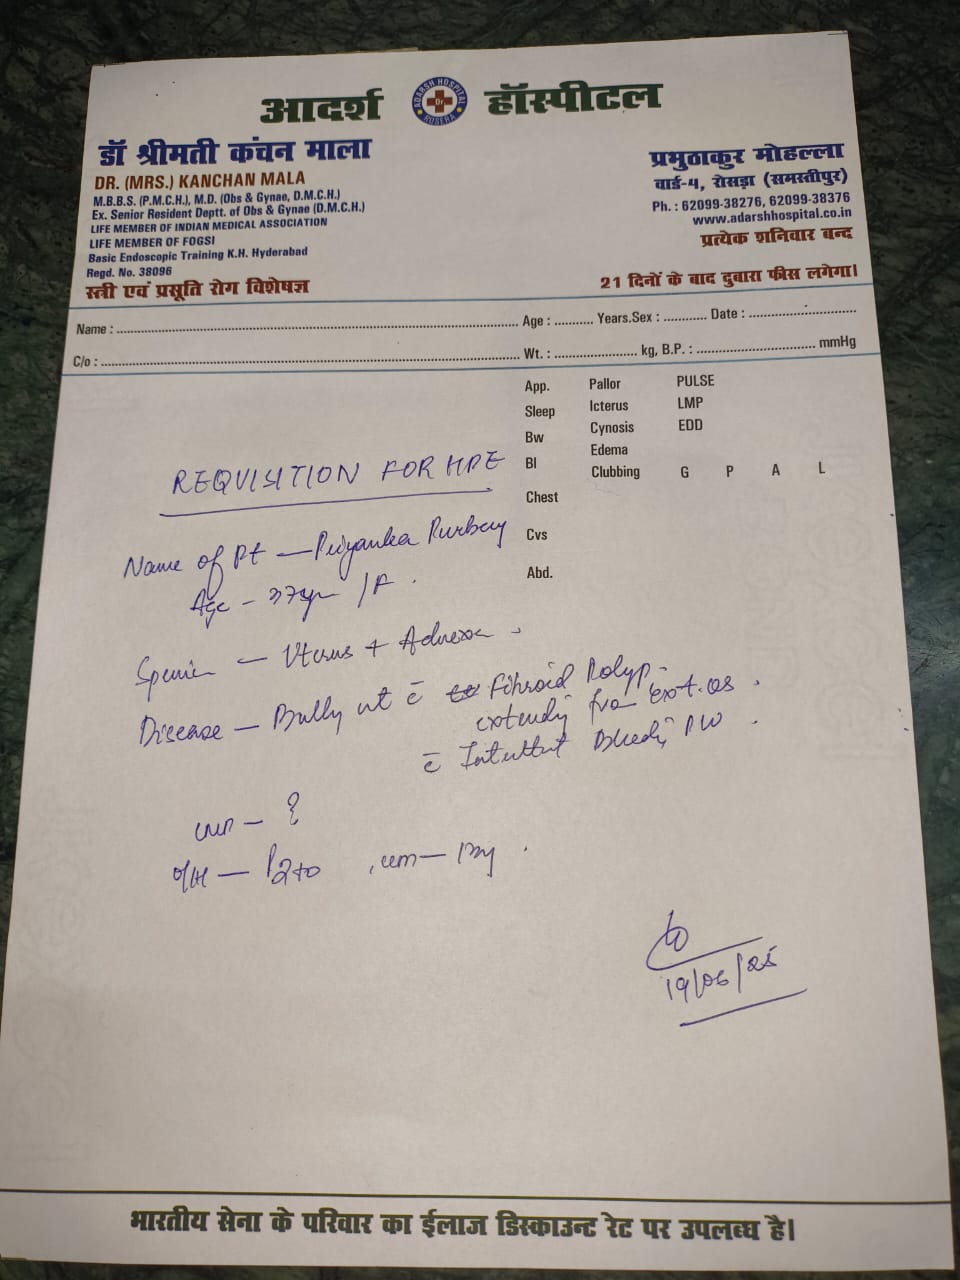 आदर्श हॉस्पीटल
ADARSH HOSPITAL
Dr.
ROSERA
डॉ श्रीमती कंचन माला
DR. (MRS.) KANCHAN MALA
M.B.B.S. (P.M.C.H.), M.D. (Obs & Gynae, D.M.C.H.)
Ex. Senior Resident Deptt. of Obs & Gynae (D.M.C.H.)
LIFE MEMBER OF INDIAN MEDICAL ASSOCIATION
LIFE MEMBER OF FOGSI
Basic Endoscopic Training K.H. Hyderabad
Regd. No. 38096
स्त्री एवं प्रसूति रोग विशेषज्ञ
प्रभुठाकुर मोहल्ला
वार्ड-4, रोसड़ा (समस्तीपुर)
Ph. : 62099-38276, 62099-38376
www.adarshhospital.co.in
प्रत्येक शनिवार बन्द
21 दिनों के बाद दुबारा फीस लगेगा।
Name : Age : Years.Sex : Date :
C/o : Wt. : kg, B.P. : mmHg
App. Pallor PULSE
Sleep Icterus LMP
Bw Cynosis EDD
Bl Edema
Clubbing G P A L
Chest
Cvs
Abd.
REQUISITION FOR HPE
Name of Pt — Priyanka Purbey
Age - 37yr /F.
Specimen — Uterus + Adnexa.
Disease — Bulky ut c̄ Fibroid Polyp.
extending from Ext. os.
c̄ Intermittent Bleeding PV.
LMP — ?
O/H — P2+0
19/06/25
भारतीय सेना के परिवार का ईलाज डिस्काउन्ट रेट पर उपलब्ध है।